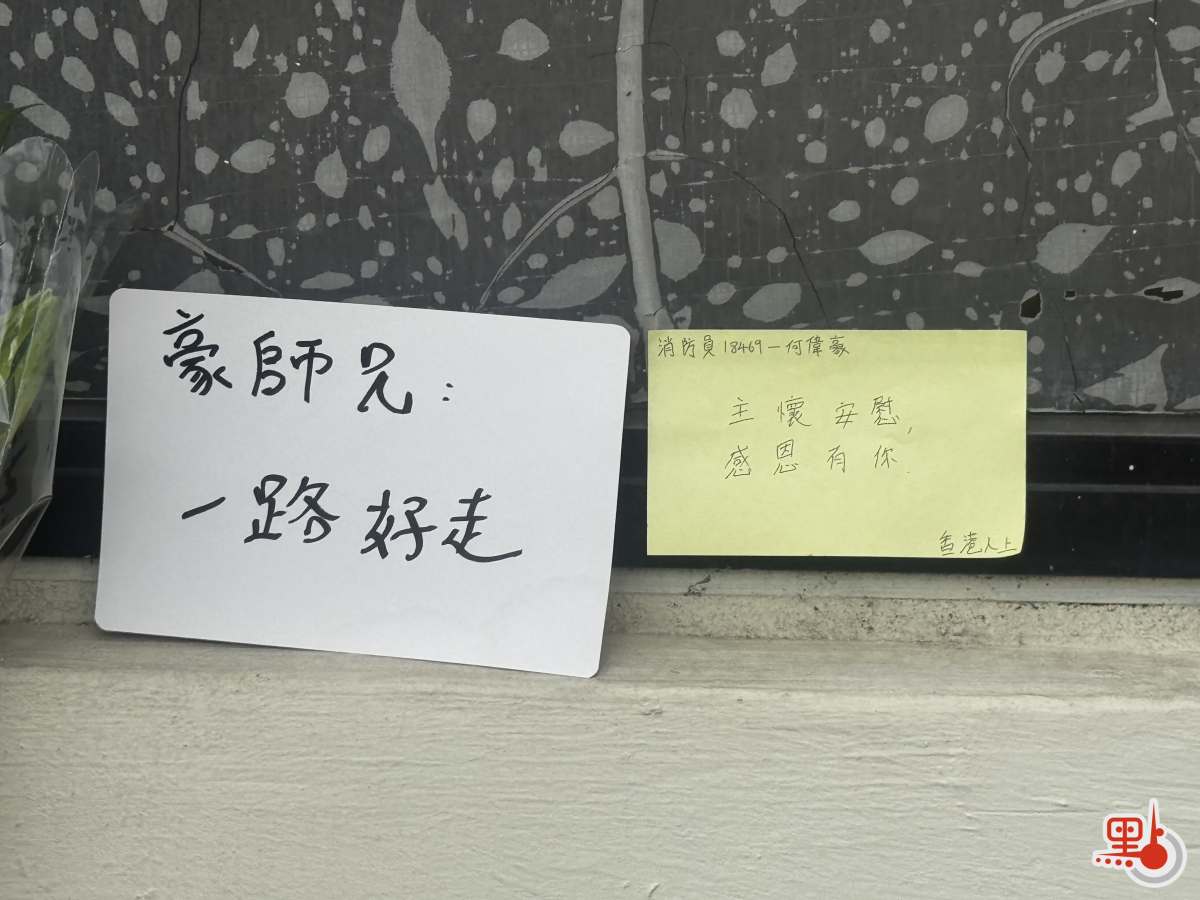 豪師兄：
一路好走
消防員18469—何偉豪
主懷安慰,
感恩有你.
香港人上
點